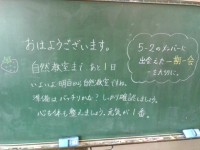 おはようございます。
自然教室まで あと1日
いよいよ明日から自然教室ですね。
準備はバッチリかな？しっかり確認しましょう。
心も体も整えましょう。元気が1番。
5-2のメンバーに
出会えた一期一会
を大切に。